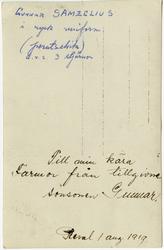 Gunnar SAMZELIUS
i rysk uniform
(porutschik)
d.v.s. 3 stjärnor
Till min kära
Farmor från tillgivne
sonsonen Gunnar.
Reval 1 aug. 1919